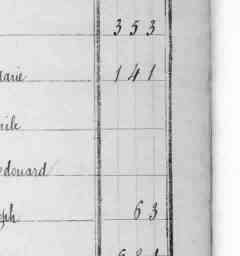 353
Marie 141
mile
Edouard
eph 63